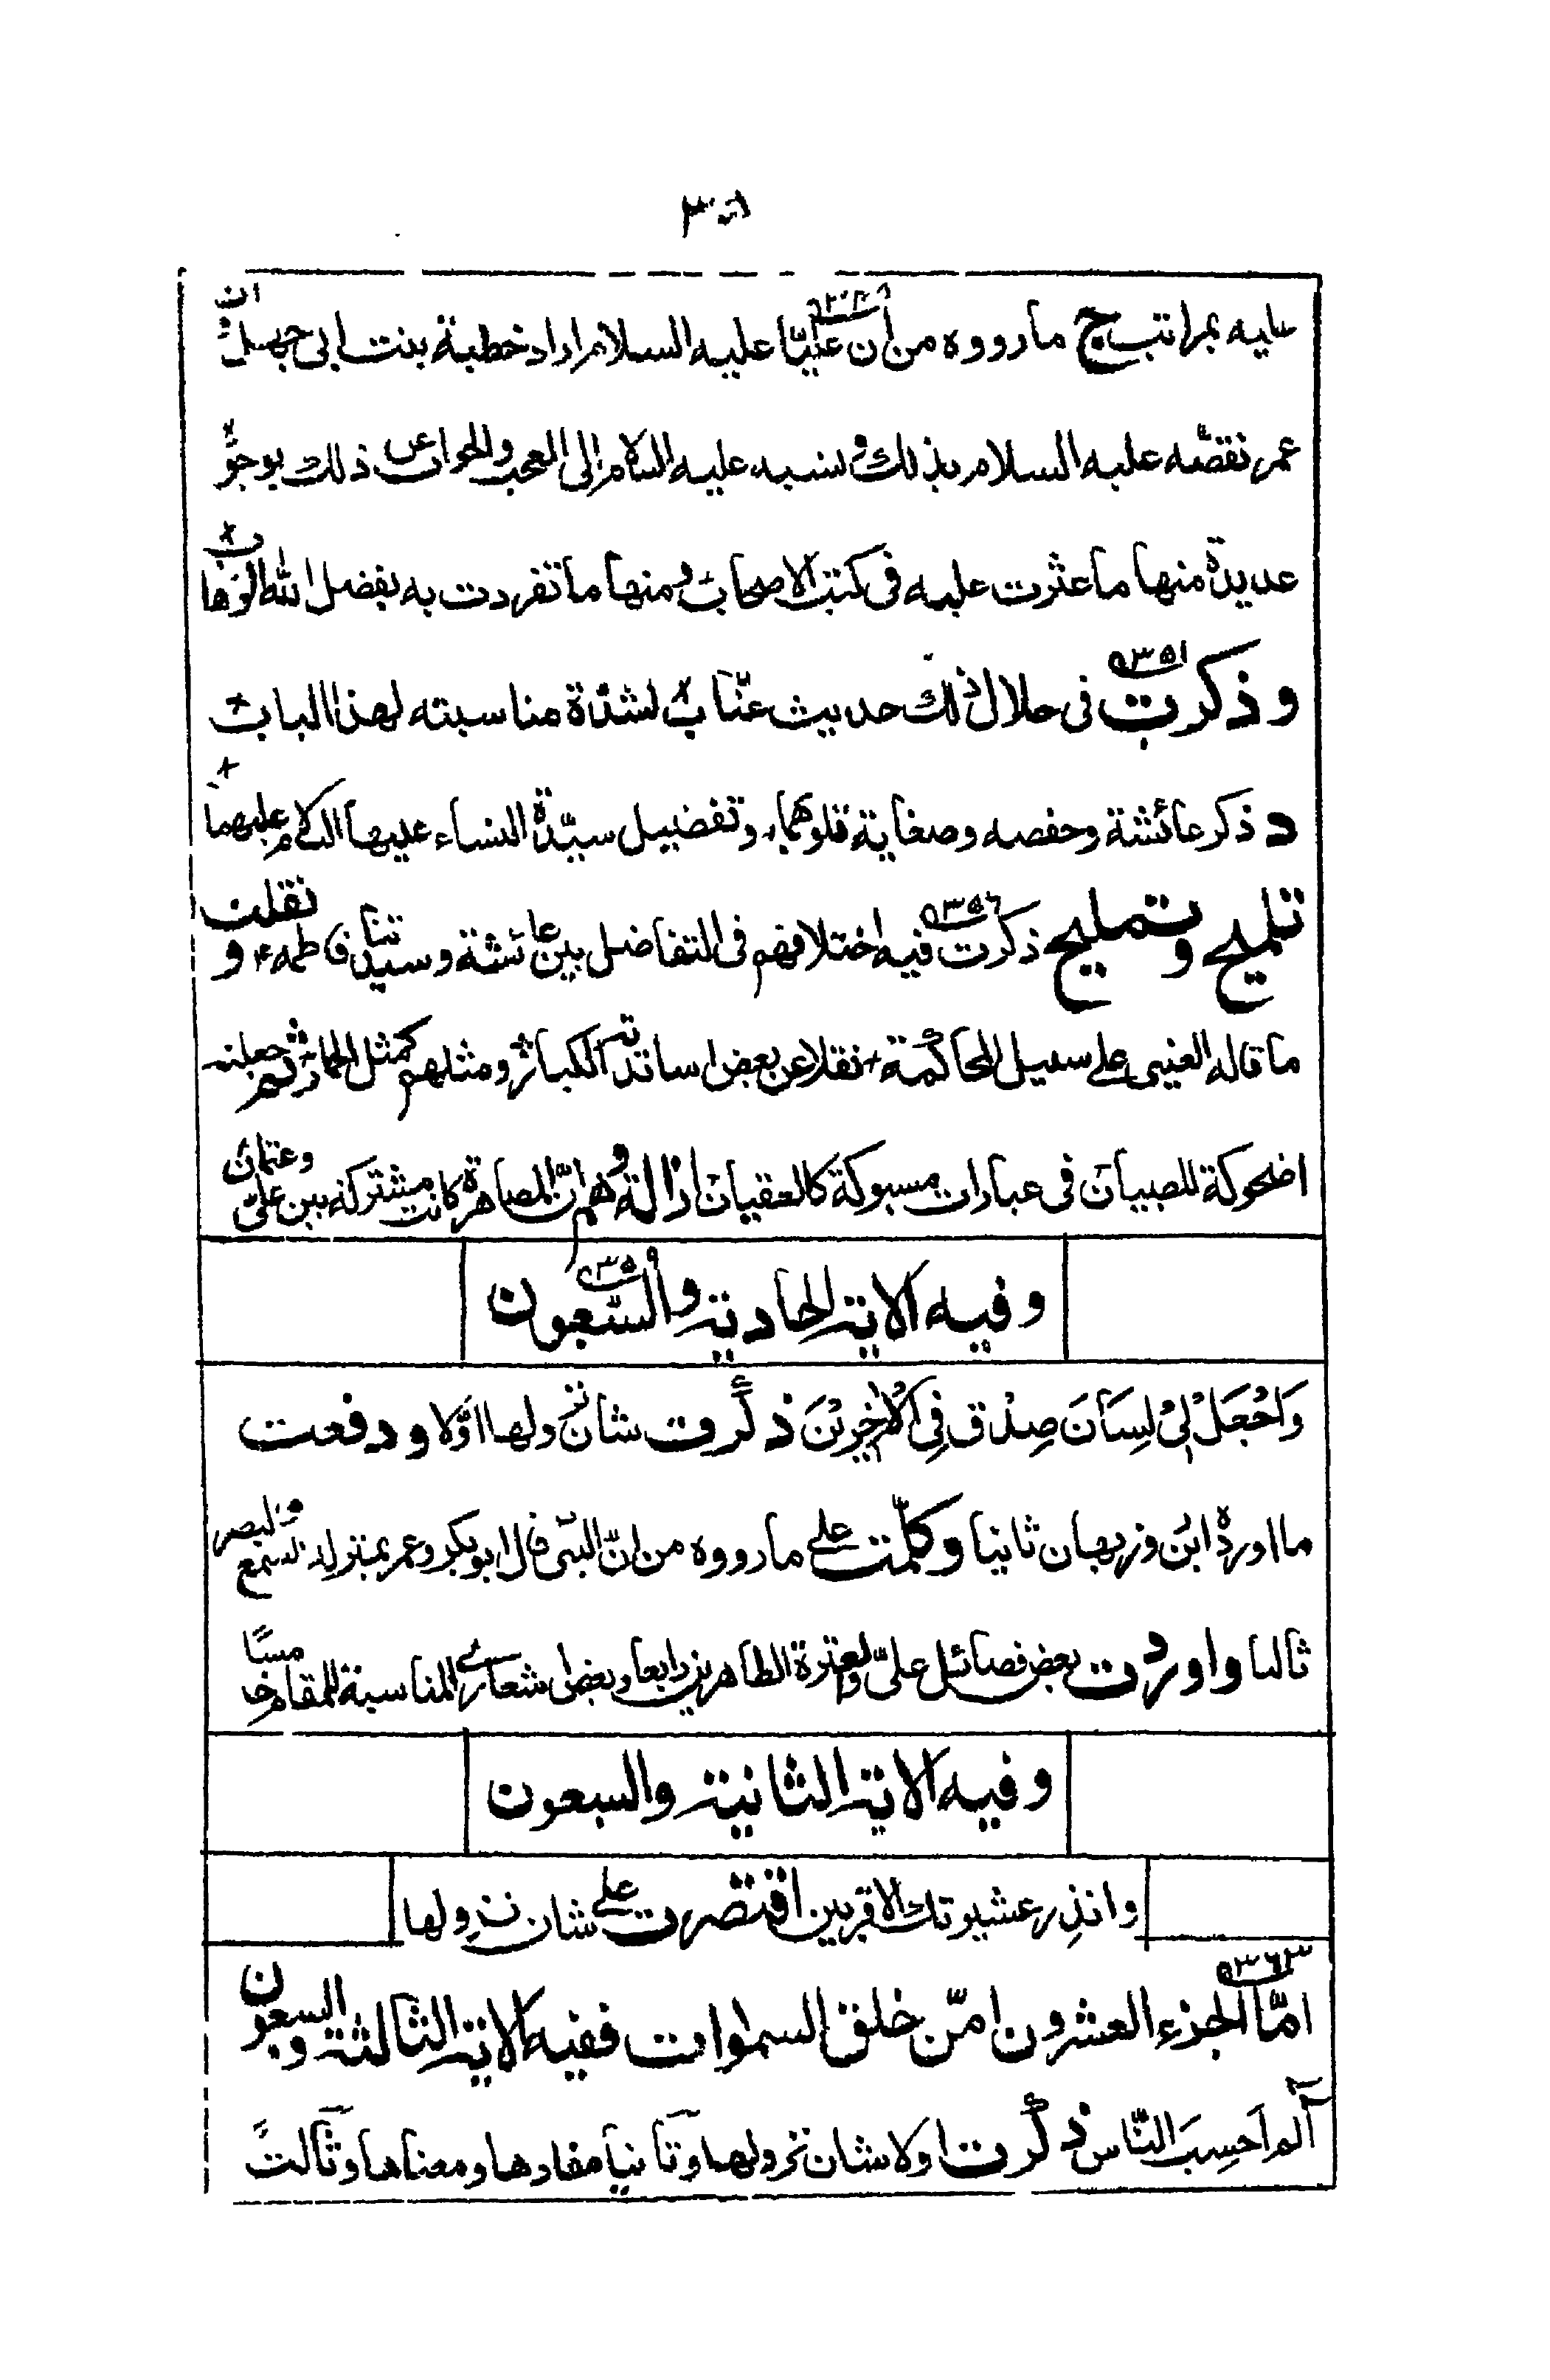 عليه بمراتب ج ما رووه من ان عليّا عليه السلام اراد خطبة بنت ابی جهل ان
عمر نقصه عليه السلام بذلك و نسبه عليه السلام الى العجب والجواب عن ذلك بوجوه
عديدة منها ما عثرت عليه فی كتب الاصحاب و منها ما تفردت به بفضل الله الوهاب
٣٥١
و ذكرت فی خلال ذلك حديث عتاب لشدّة مناسبته لهذا الباب
د ذكر عائشة وحفصه وصغاية قلوبهما وتفضيل سيّدة النساء عليها السلام عليهما
٣٥٦
تلميح و تمليح ذكرت فيه اختلافهم فی التفاضل بين عائشة و سيدتنا فاطمه ع و نقلت
ما قاله العينی على سبيل المحاكمة نقلا عن بعض اساتذته الكبار و مثلهم كمثل الحمار ثم جعلته
اضحوكة للصبيان فی عبارات مسبوكة كالعقيان ازالة وهم انّ المصاهرة كانت مشتركة بين علیّ وعثمان
٣٥٩
وفيه الاية الحادية والسبعون
وَاجْعَلْ لِیْ لِسَانَ صِدْق فِی الْاٰخِرِيْنَ ذكرت شان نزولها اوّلا و دفعت
ما اورده ابن روزبهان ثانيا و كلّمت على ما رووه من انّ النبی قال ابو بكر و عمر بمنزلة السمع والبصر
ثالثا و اوردت بعض فضائل علیّ والعترة الطاهرين رابعا و بعض اشعاری المناسبة للمقام خامسًا
وفيه الاية الثانية والسبعون
وانذر عشيرتك الاقربين اقتصرت على شان نزولها
٣٦٣
امّا الجزء العشرون امّن خلق السموات ففيه الاية الثالثة والسبعون
آلم اَحَسِبَ النّاس ذكرت اولا شان نزولها و ثانيا مفادها و معناها و ثالثًا